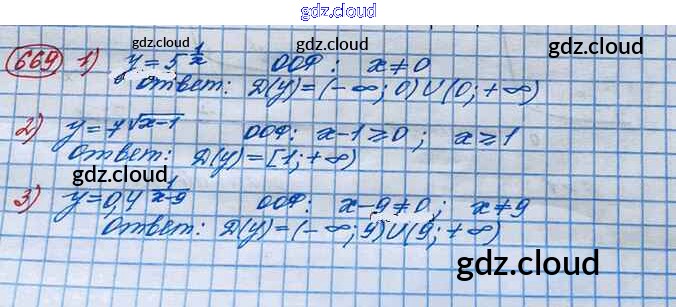 gdz.cloud
gdz.cloud gdz.cloud
669 1) y = 5^(1/x) ООФ: x ≠ 0
Ответ: D(y) = (-∞; 0) ∪ (0; +∞)
2) y = 7^√(x-1) ООФ: x-1 ≥ 0; x ≥ 1
Ответ: D(y) = [1; +∞)
gdz.cloud gdz.cloud
3) y = 0,4^(1/(x-9)) ООФ: x-9 ≠ 0; x ≠ 9
Ответ: D(y) = (-∞; 9) ∪ (9; +∞)
gdz.cloud